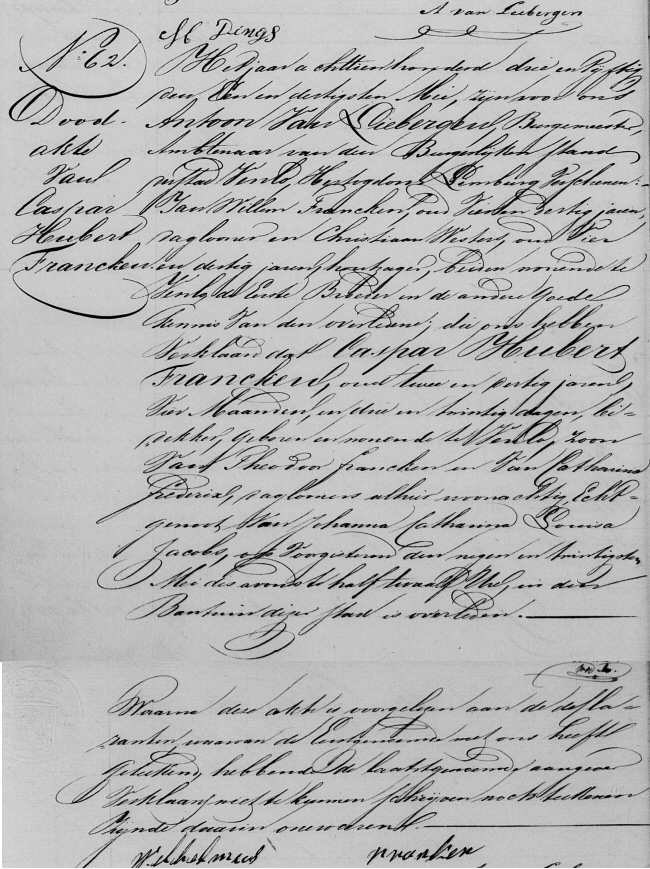 A van Liebergen
H Dings
No. 62.
Dood-
akte
Van
Caspar
Hubert
Francken
Het jaar achttienhonderd drie en vyftig
den Een en dertigsten Mei, zyn voor ons
Antoon Van Liebergen, Burgemeester,
Ambtenaar van den Burgerlyken stand
der stad Venlo, Hertogdom Limburg Verschenen:
Jan Willem Francken, oud Vier en dertig jaren,
daglooner en Christiaan Westers, oud Vier
en dertig jaren, houtzager, beiden wonende te
Venlo, de Eerste Broeder en de andere goede
Kennis Van den overledene; die ons hebben
Verklaard dat Caspar Hubert
Francken, oud twee en dertig jaren,
Vier Maanden, en drie en twintig dagen, lei-
dekker, geboren en wonende te Venlo, zoon
Van Theodoor Francken en Van Catharina
Frederix, dagloners alhier woonachtig, Echt-
genoot Van Johanna Catharina Louisa
Jacobs, op Voorgisteren den negen en twintigsten
Mei des avonds te half twaalf Ure, in den
Bantuin dezer stad is overleden.
Waarna deze akte is voorgelezen aan de decla-
ranten, waarvan de Eerstgenoemde met ons heeft
geteekend, hebbende de laatstgenoemde aangever
Verklaard niet te kunnen schryven noch teekenen
Zynde daarin onervaren.
Wilhelmus vranken